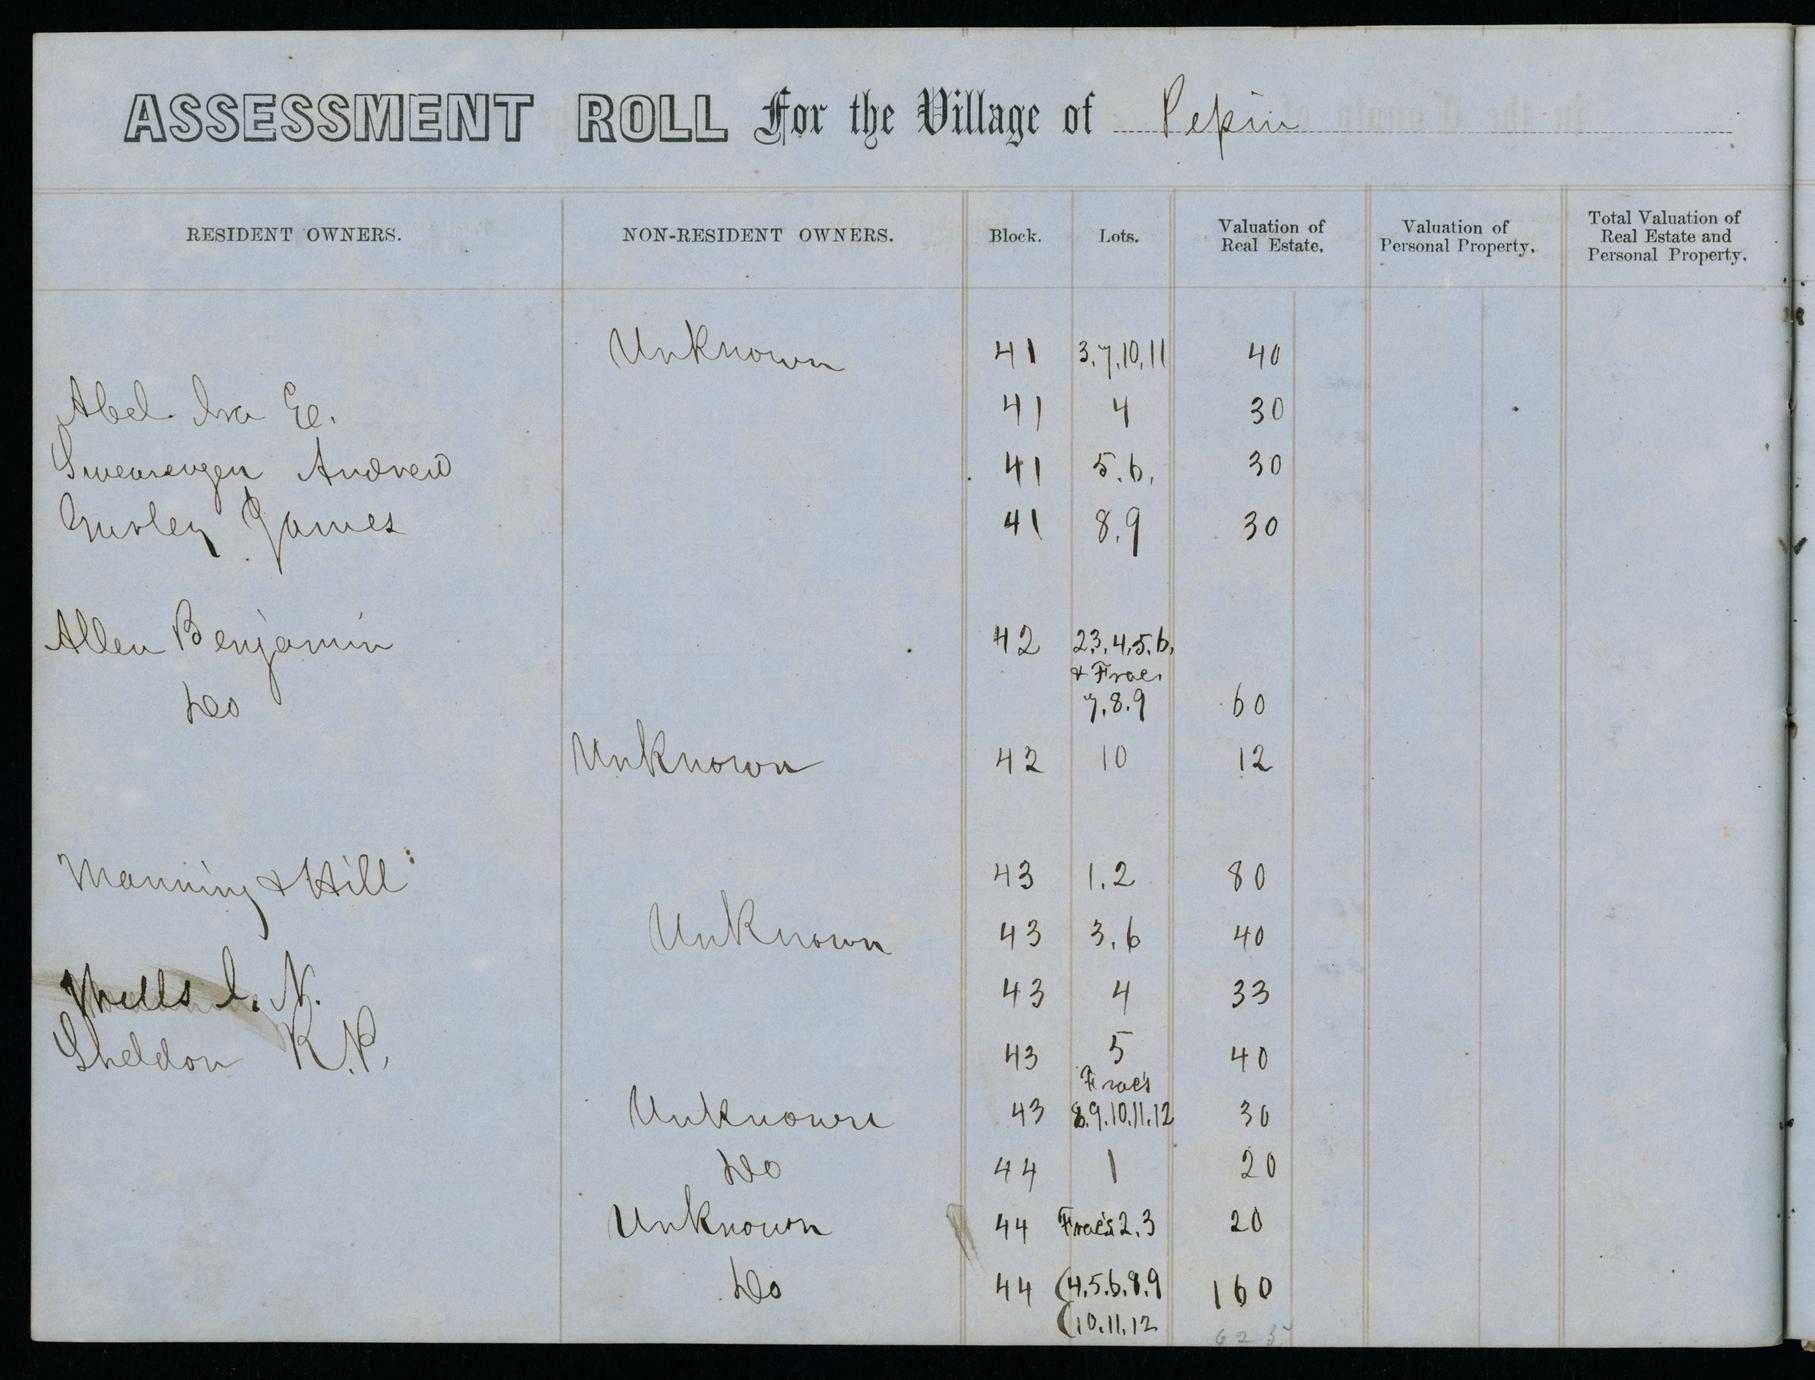 ASSESSMENT ROLL For the Village of Pepin
RESIDENT OWNERS. NON-RESIDENT OWNERS. Block. Lots. Valuation of Real Estate. Valuation of Personal Property. Total Valuation of Real Estate and Personal Property.
Unknown 41 3,7,10,11 40
Abel Ira E. 41 4 30
Swearengen Andrew 41 5.6. 30
Gurley James 41 8.9 30
Allen Benjamin 42 2,3,4,5,6,
& Frac.
Do 7.8.9 60
Unknown 42 10 12
Manning & Hill 43 1.2 80
Unknown 43 3.6 40
Mills I. N. 43 4 33
Sheldon K. P. 43 5 40
Frac's
Unknown 43 8.9.10.11.12 30
Do 44 1 20
Unknown 44 Frac's 2.3 20
Do 44 (4.5.6.8.9 160
(10.11.12
625